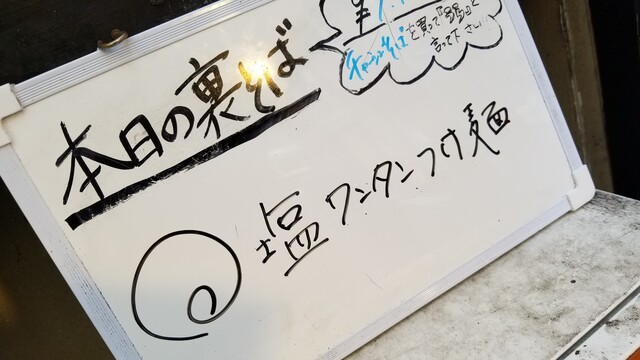 本日の裏そば
チャーシューそばを買って『裏』と
言って下さい
塩ワンタンつけ麺